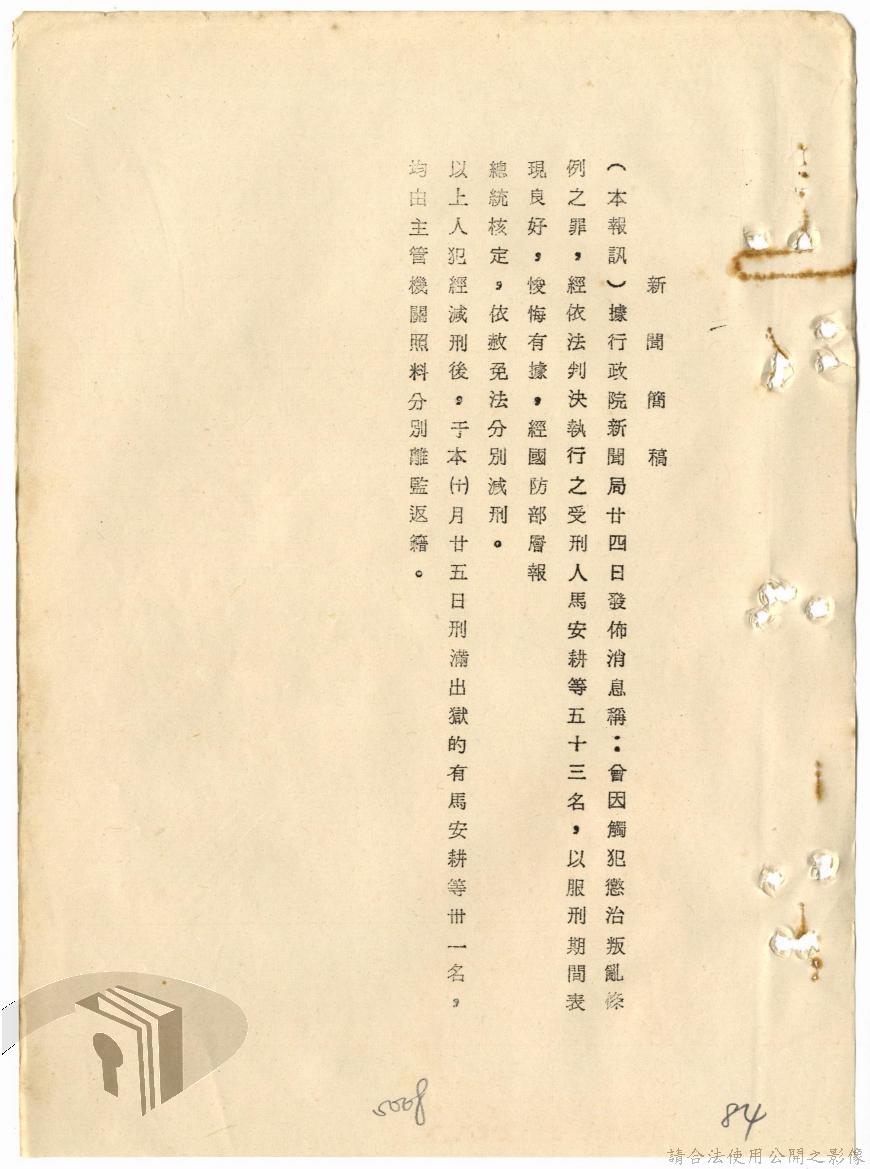 新聞簡稿
（本報訊）據行政院新聞局廿四日發佈消息稱：曾因觸犯懲治叛亂條
例之罪，經依法判決執行之受刑人馬安耕等五十三名，以服刑期間表
現良好，悛悔有據，經國防部層報
總統核定，依赦免法分別減刑。
以上人犯經減刑後，于本(十)月廿五日刑滿出獄的有馬安耕等卅一名，
均由主管機關照料分別離監返籍。
5008
84
請合法使用公開之影像